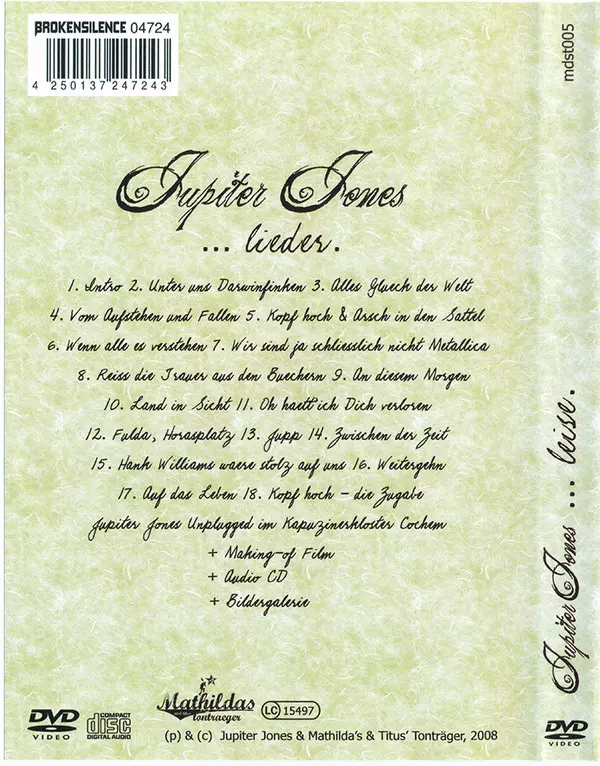 BROKENSILENCE 04724
4 250137 247243
Jupiter Jones
... lieder.
1. Intro 2. Unter uns Darwinfinken 3. Alles Glueck der Welt
4. Vom Aufstehen und Fallen 5. Kopf hoch & Arsch in den Sattel
6. Wenn alle es verstehen 7. Wir sind ja schliesslich nicht Metallica
8. Reiss die Trauer aus den Buechern 9. An diesem Morgen
10. Land in Sicht 11. Oh haett'ich Dich verloren
12. Fulda, Horasplatz 13. Jupp 14. Zwischen der Zeit
15. Hank Williams waere stolz auf uns 16. Weitergehn
17. Auf das Leben 18. Kopf hoch - die Zugabe
Jupiter Jones Unplugged im Kapuzinerkloster Cochem
+ Making-of Film
+ Audio CD
+ Bildergalerie
DVD
VIDEO
COMPACT
disc
DIGITAL AUDIO
Mathildas
tontraeger
LC 15497
(p) & (c) Jupiter Jones & Mathilda's & Titus' Tonträger, 2008
mdst005
Jupiter Jones ... leise.
DVD
VIDEO